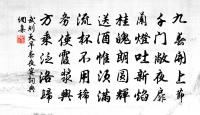 九春開上節
千門敞夜扉
蘭燈吐新焰
桂魄朗圓輝
送酒惟須滿
流杯不用稀
務使霞漿興
方乘泛洛歸
武則天早春夜宴詞典
網集